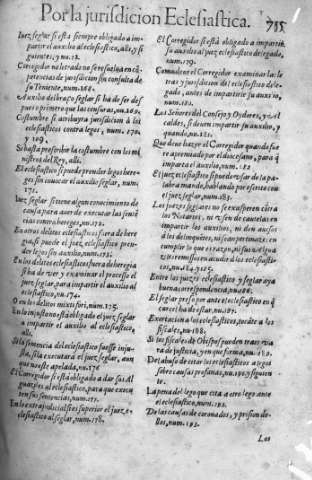 Por la jurisdicion Eclesiastica. 755
Iuez seglar si està siempre obligado a im-
partir el auxilio al eclesiastico, alli, y si
guientes, y nu.18.
Corregidor no letrado no se resuelua en cõ
petencias de jurisdicion sin consulta de
su Teniente, num.168.
Auxilio del braço seglar si ha de ser des
pues primero que las censuras, nu.169.
Costumbre si atribuya jurisdicion a los
eclesiasticos contra legos, num. 170.
y 109.
Si basta prescribir la costumbre con los mi
nistros del Rey, alli.
El eclesiastico si puede prender legos here-
ges sin inuocar el auxilio seglar, num.
171.
Iuez seglar si tiene algun conocimiento de
causa para auer de executar las senten
cias contra hereges, nu.172.
En otros delitos eclesiasticos fuera de here
gia, si puede el juez eclesiastico pren-
der legos sin auxilio, num.173.
En los delitos eclesiasticos fuera de heregia
si ha de ver y examinar el processo el
juez seglar, para impartir el auxilio al
eclesiastico, nu.174.
O en los delitos mixti fori, nu.175.
En lo injusto no està obligado el juez seglar
a impartir el auxilio al eclesiastico,
alli.
Si la sentencia del eclesiastico fuesse injus-
ta, si la executarà el juez seglar, aun
que no este apelada, nu.176
El Corregidor si està obligado a dar sus Al
guaziles al eclesiastico, para que execu
ten sus sentencias, num.177.
En lo extrajudicial si es superior el juez e-
clesiastico al seglar, num.178.
El Corregidor si està obligado a impartir
su auxilio al juez eclesiastico delegado,
num.179.
Como deue el Corregidor examinar las le
tras y jurisdicion del eclesiastico dele-
gado, antes de impartirle su auxilio,
num.181.
Los Señores del Consejo y Oydores, y Al
caldes, si deuen impartir su auxilio, y
quando, nu.181.
Que deue hazer el Corregidor quando fue
re apremiado por el diocesano, para q̃
imparta el auxilio nu.182.
El juez eclesiastico si puede vsar de la pa-
labra mando, hablando por escrito con
el juez seglar, num.183.
Los juezes seglares no se esquiuen con
los Notarios, ni vsen de cautelas en
impartir los auxilios, ni den auisos
a los delinquentes, ni sean pertinazes en
cumplir lo que es razon,
y remissos en acudir a los eclesiasti-
cos, nu.184. y 125.
Entre los juezes eclesiastico y seglar aya
buena correspondencia, nu.186.
El seglar preso por ante el eclesiastico en q̃
carcel ha de estar, nu.187.
Exortacion a los eclesiasticos, tocãte a los
fiscales, nu.188.
Si los fiscales de Obispos pueden traer va
ra de justicia, y en que forma, nu.189.
Del abuso de citar los eclesiasticos a legos
sobre causas profanas, nu.190. y siguien
te.
La pena del lego que cita a otro lego ante
el eclesiastico, num.191.
De las causas de coronados, y prision de-
llos, num.192.
Los